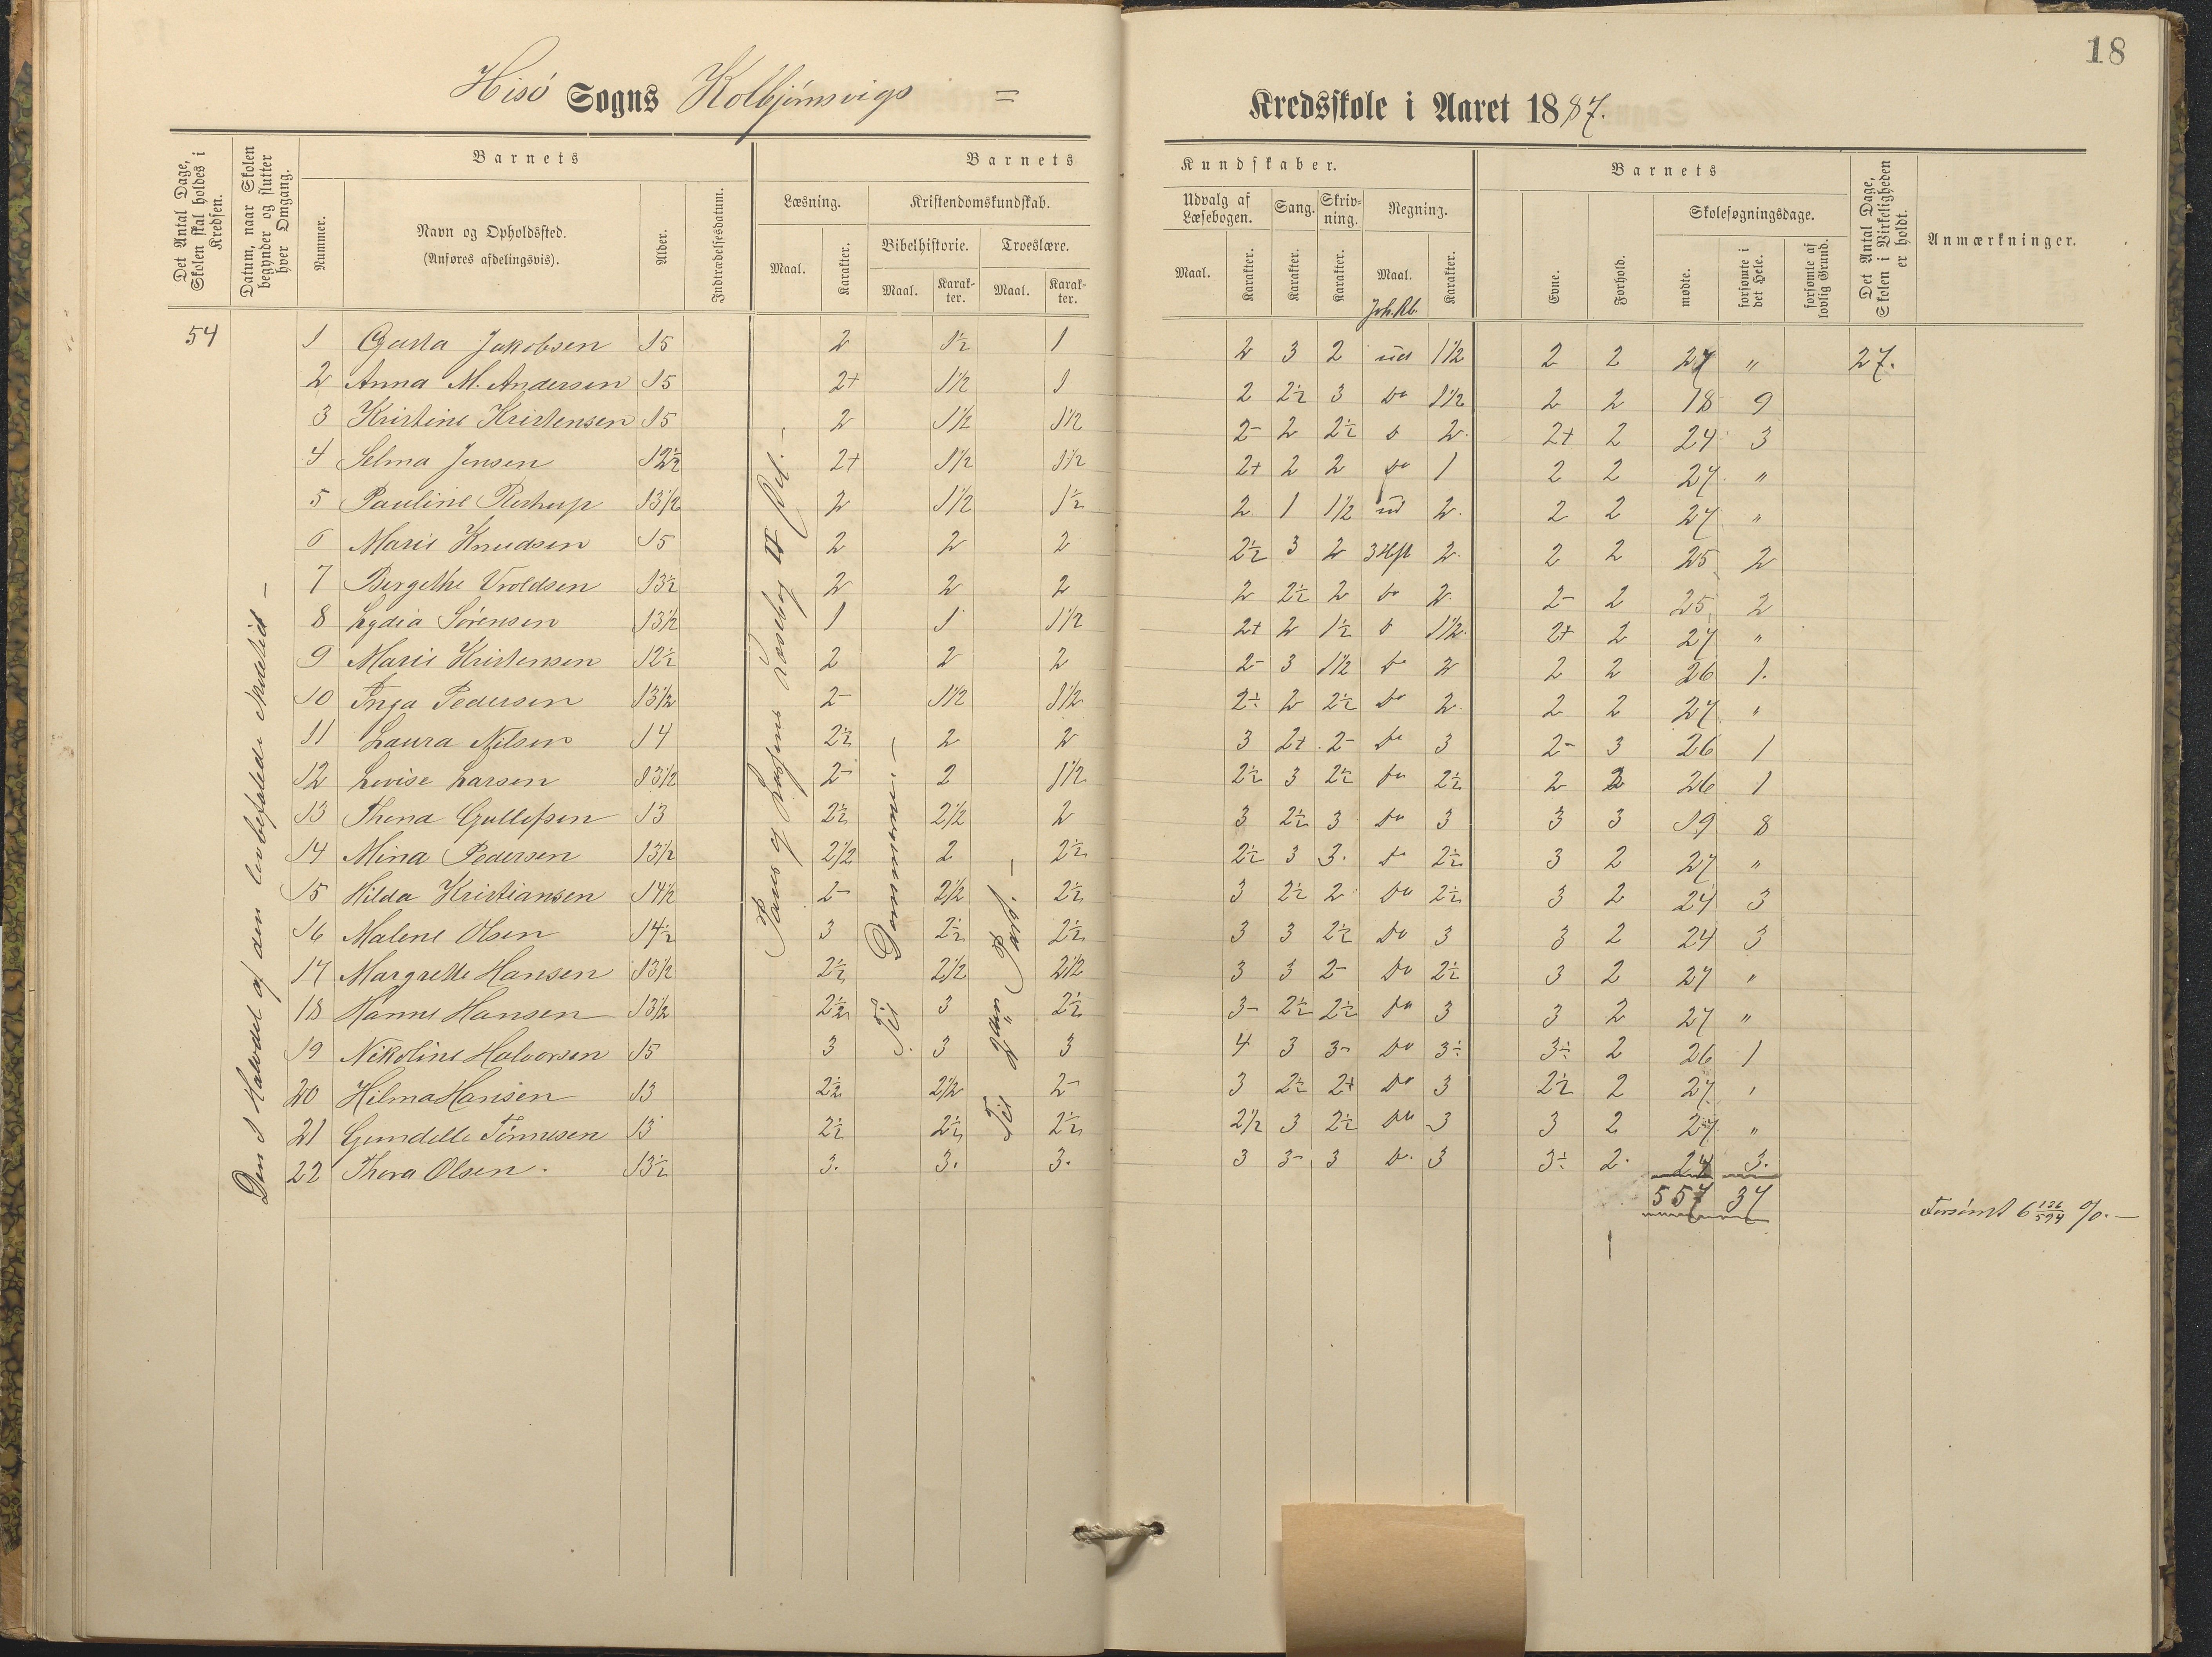 18
Hisö Sogns Kolbjörnsvigs = Kredsskole i Aaret 1887.
Det Antal Dage, Skolen skal holdes i Kredsen.
Datum, naar Skolen begynder og slutter hver Omgang.
Barnets
Nummer.
Navn og Opholdssted.
(Anføres afdelingsvis).
Alder.
Indtrædelsesdatum.
Barnets Kundskaber.
Læsning. Maal. Karakter.
Kristendomskundskab.
Bibelhistorie. Maal. Karakter.
Troeslære. Maal. Karakter.
Udvalg af Læsebogen. Maal. Karakter.
Sang. Karakter.
Skrivning. Karakter.
Regning. Maal. Karakter.
Joh. Rb.
Barnets
Evne. Forhold.
Skolesøgningsdage.
mødte. forsømte i det Hele. forsømte af lovlig Grund.
Det Antal Dage, Skolen i Virkeligheden er holdt.
Anmærkninger.
54
Den I Halvdel af den lovbefalede Skoletid -
Læsebog II
Til
Til
1 Gusta Jakobsen 15 2 1½ 1 2 3 2 ud 1½ 2 2 27 " 27.
2 Anna M. Andersen 15 2+ 1½ 1 2 2½ 3 do 1½ 2 2 18 9
3 Kristine Kristensen 15 2 1½ 1½ 2- 2 2½ d 2. 2+ 2 24 3
4 Selma Jensen 12½ 2+ 1½ 1½ 2+ 2 2 do 1 2 2 27 "
5 Pauline Restrup 13½ 2 1½ 1½ 2 1 1½ ud 2. 2 2 27 "
6 Marie Knudsen 15 2 2 2 2½ 3 2 3 Hft 2. 2 2 25 2
7 Bergethe Vroldsen 13½ 2 2 2 2 2½ 2 do 2. 2- 2 25 2
8 Lydia Sörensen 13½ 1 1 1½ 2+ 2 1½ d 1½. 2+ 2 27 "
9 Marie Kristensen 12½ 2 2 2 2- 3 1½ do 2 2 2 26 1.
10 Inga Pedersen 13½ 2- 1½ 1½ 2½ 2 2½ do 2. 2 2 27 "
11 Laura Nilsen 14 2½ 2 2 3 2+ 2- do 3 2- 3 26 1
12 Lovise Larsen 13½ 2- 2 1½ 2½ 3 2½ do 2½ 2 2 26 1
13 Thena Gullefsen 13 2½ 2½ 2 3 2½ 3 do 3 3 3 19 8
14 Mina Pedersen 13½ 2½ 2 2½ 2½ 3 3. do 2½ 3 2 27 "
15 Hilda Kristiansen 14½ 2- 2½ 2½ 3 2½ 2 do 2½ 3 2 24 3
16 Malene Olsen 14½ 3 2½ 2½ 3 3 2½ do 3 3 2 24 3
17 Margrethe Hansen 13½ 2½ 2½ 2½ 3 3 2- do 2½ 3 2 27 "
18 Hanne Hansen 13½ 2½ 3 2½ 3- 2½ 2½ do 3 3 2 27 "
19 Nikoline Halvorsen 15 3 3 3 4 3 3- do 3÷ 3÷ 2 26 1
20 Hilma Hansen 13 2½ 2½ 2- 3 2½ 2+ do 3 2½ 2 27 "
21 Gundelle Tönnesen 13 2½ 2½ 2½ 2½ 3 2½ do 3 3 2 27 "
22 Thora Olsen. 13½ 3. 3. 3. 3 3- 3 do. 3 3÷ 2. 24 3.
557 37
Forsömt 6 136/594 %. —